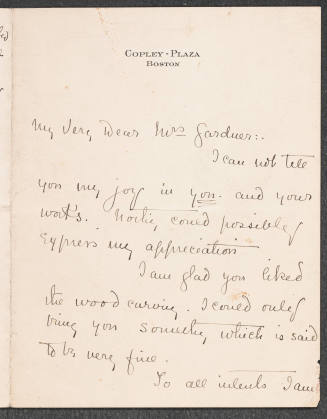 COPLEY-PLAZA
BOSTON
My Very Dear Mrs Gardner:.
I can not tell
you my joy in you and your
works. could possibly
Express my appreciation
I am glad you liked
the wood carving. I could only
bring you which is said
to be very fine.
To all intents I am